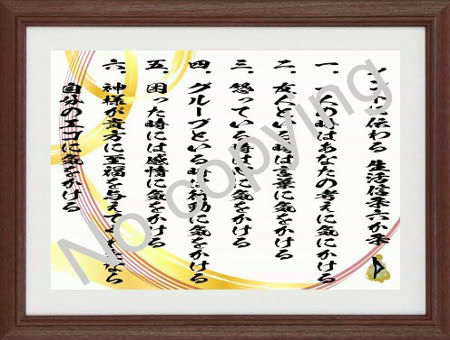 インドに伝わる 生活信条六か条
一、一人の時はあなたの考えに気にかける
二、友人といる時は言葉に気をかける
三、怒っている時は心に気をかける
四、グループといる時は行動に気をかける
五、困った時には感情に気をかける
六、神様が貴方に至福を与えてくださるなら
自分のエゴに気をかける
No copying